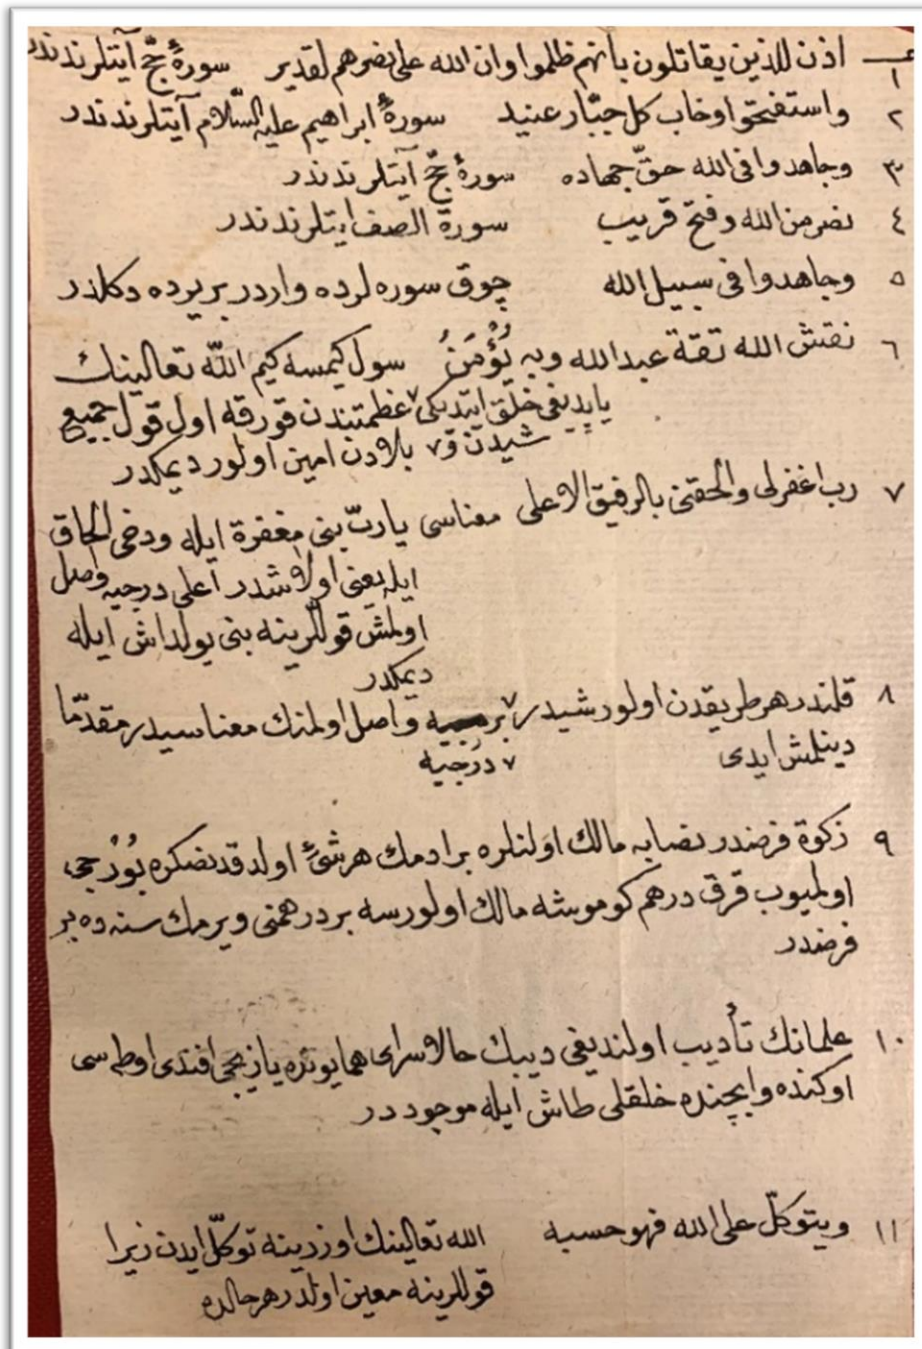 ١ اذن للذين يقاتلون بانهم ظلموا وان الله على نصرهم لقدير سورهٔ حجّ آيتلرندندر
٢ واستفتحوا وخاب كل جبّار عنيد سورهٔ ابراهيم عليه السّلام آيتلرندندر
٣ وجاهدوا فى الله حقّ جهاده سورهٔ حجّ آيتلرندندر
٤ نصر من الله وفتح قريب سورة الصف ايتلرندندر
٥ وجاهدوا فى سبيل الله چوق سوره لرده واردر بر يرده دكلدر
٦ نقش الله ثقة عبدالله وبه يُؤْمَنُ سول كيمسه كيم اللّه تعالينك
ياپديغى خلق ايتديكى ٧ عظمتندن قورقه اول قول جميع
شيدن و ٧ بلادن امين اولور ديمكدر
٧ رب اغفرلى والحقنى بالرفيق الاعلى معناسى يا ربّ بنى مغفرة ايله ودخى الحاق
ايله يعنى اولاشدر اعلى درجيه واصل
اولمش قوللرينه بنى يولداش ايله
ديمكدر
٨ قلندر هر طريقدن اولور شيدر ٧ بر واصل اولمنك معناسيدر مقدّما
دينلمش ايدى ٧ درجيه
٩ زكوة فرضدر نصابه مالك اولنلره برادمك هر شئ اولدقدنصكره بُوْرْجى
اولميوب قرق درهم كوموشه مالك اولورسه بر درهمنى ويرمك سنه ده بر
فرضدر
١٠ علمانك تأديب اولنديغى ديبك حالا سراى همايونده يازيجى افندى اوطه سى
اوكنده وايچنده خلقلى طاش ايله موجوددر
١١ ويتوكّل على الله فهو حسبه الله تعالينك اوزرينه توكّل ايدن زيرا
قوللرينه معين اولدر هر حالده